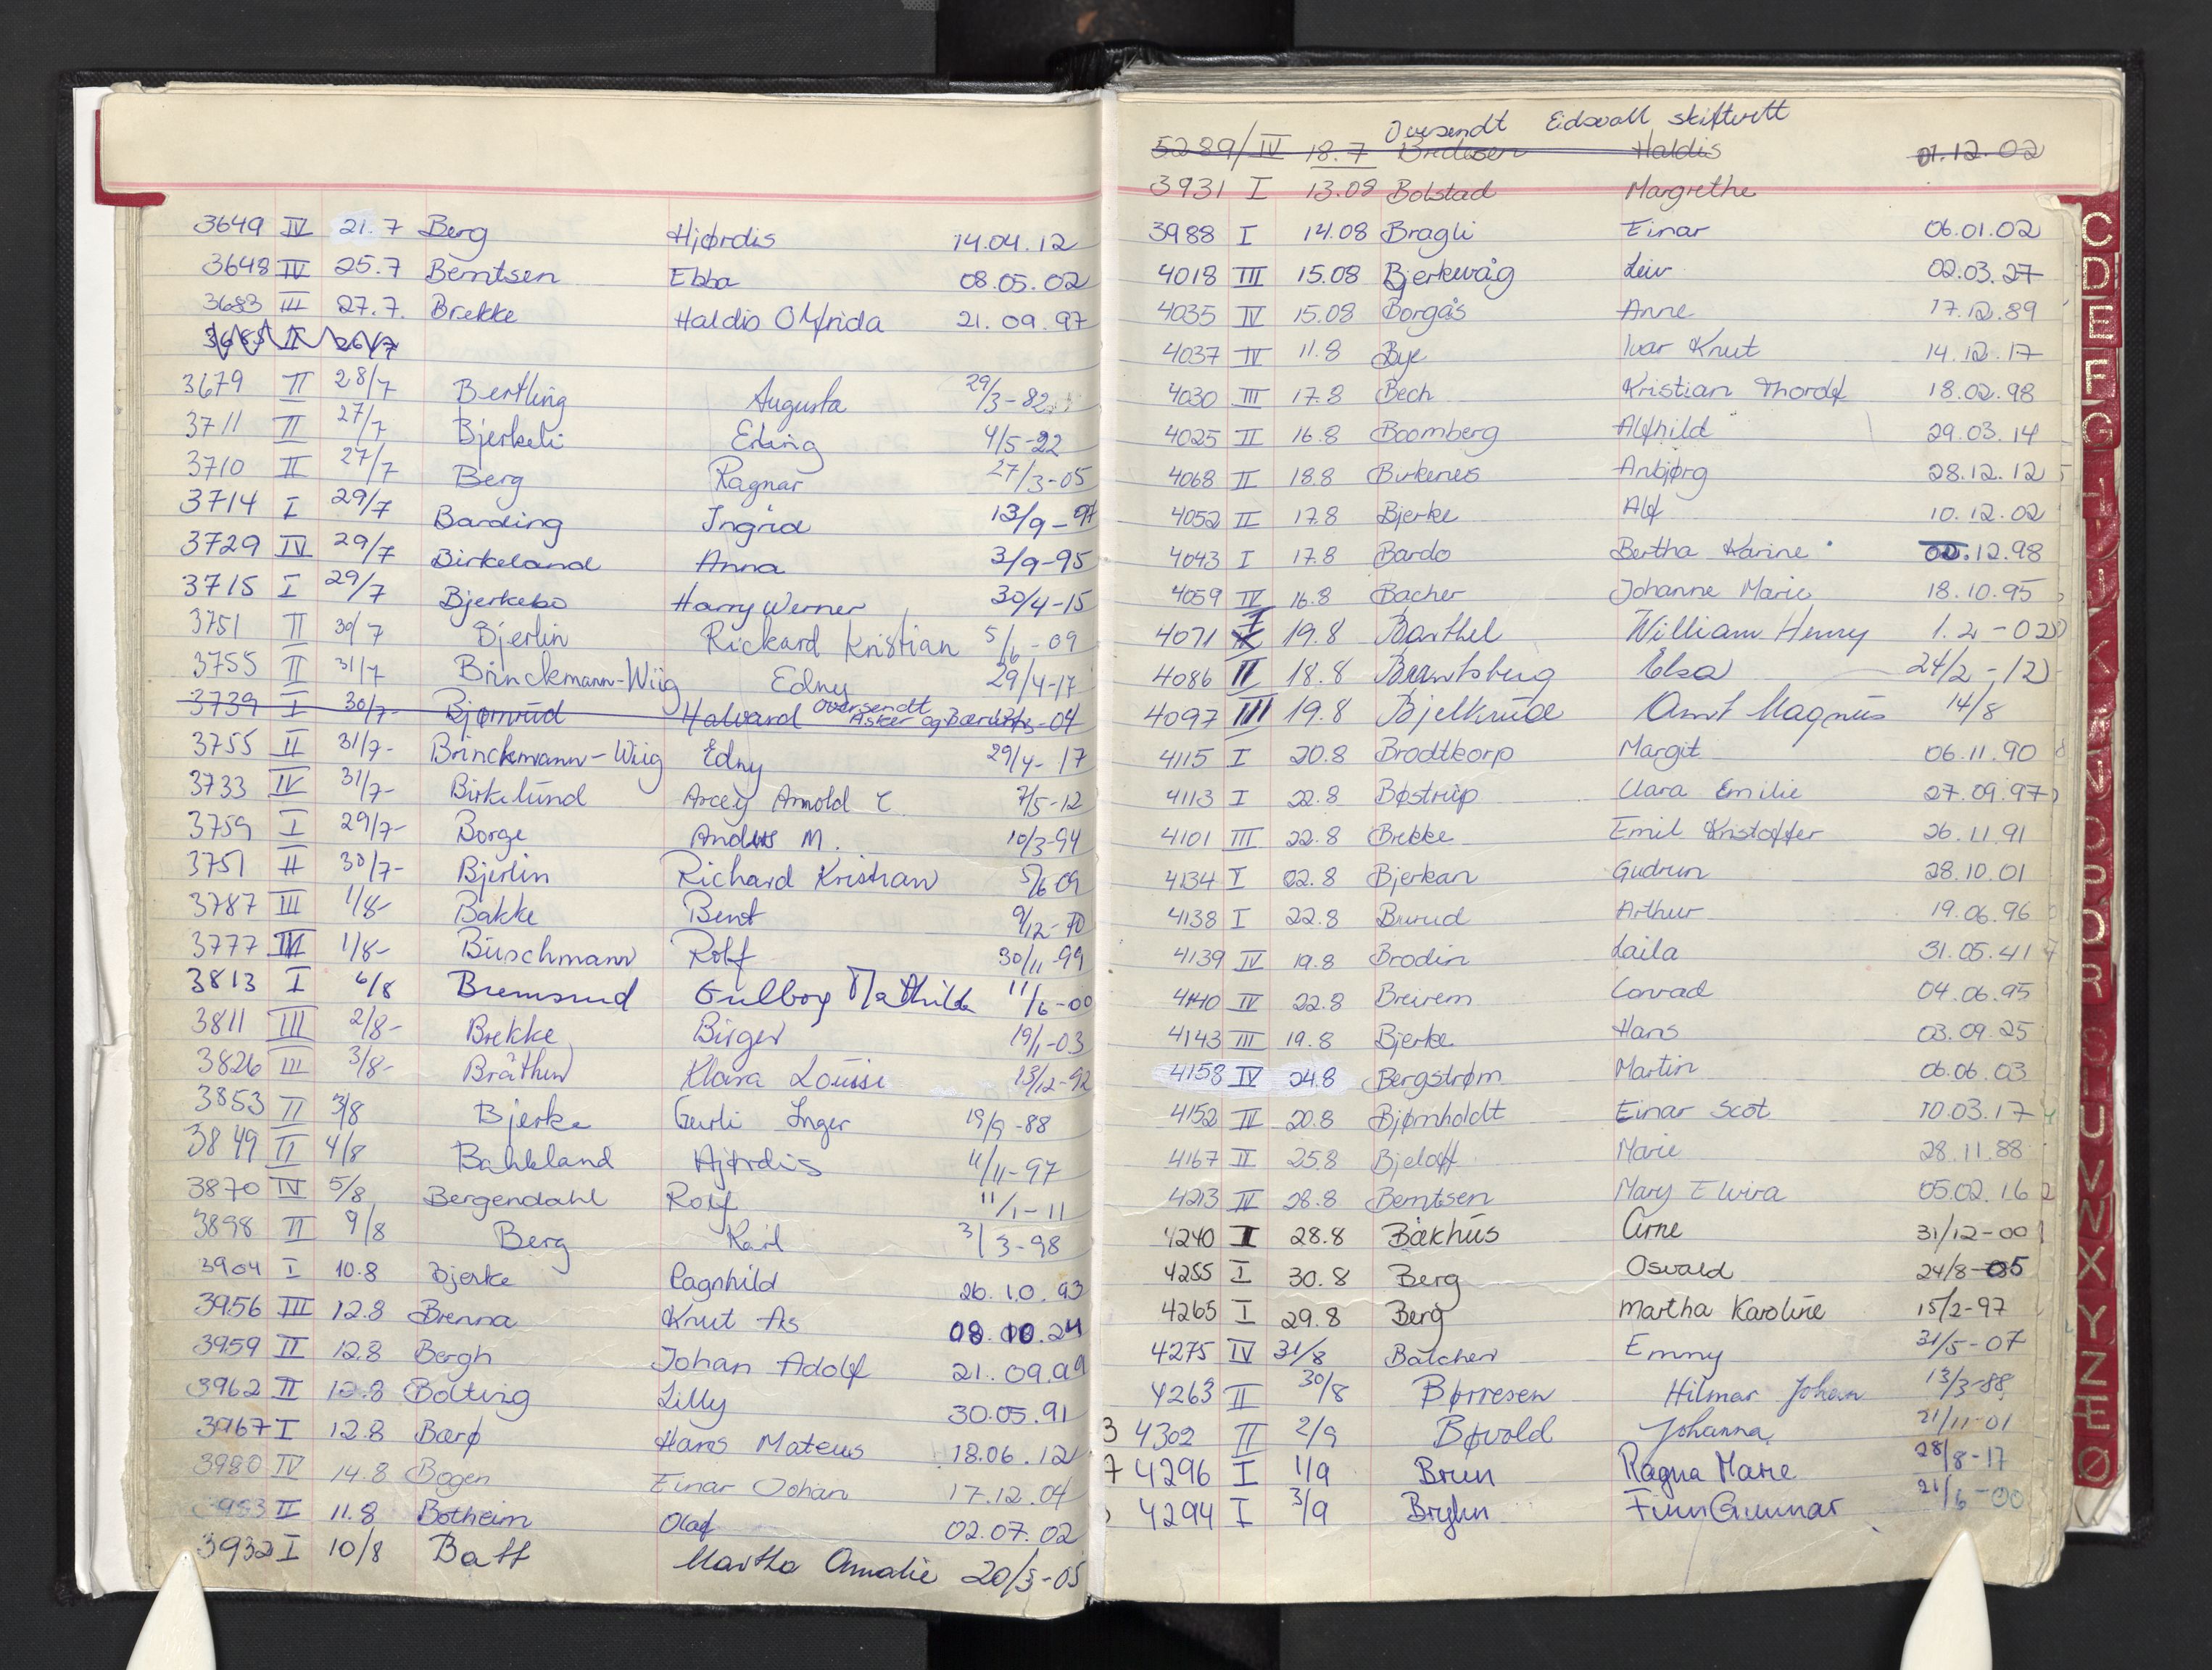 3649 IV 21.7 Berg Hjørdis 14.04.12
3648 IV 25.7 Berntsen Ebba 08.05.02
3683 III 27.7. Brekke Haldis Olfrida 21.09.97
26/7
3679 II 28/7 Bertling Augusta 29/3-82
3711 II 27/7 Bjerkeli Erling 4/5-22
3710 II 27/7 Berg Ragnar 27/3-05
3714 I 29/7 Barding Ingrid 13/9-97
3729 IV 29/7 Birkeland Anna 3/9-95
3715 I 29/7 Bjerkebo Harry Werner 30/4-15
3751 II 30/7 Bjerlin Rickard Kristian 5/6-09
3755 II 31/7 Brinckmann-Wiig Edny 29/4-17
3739 I 30/7- Bjørnrud Halvard Oversendt Asker og Bærum -04
3755 II 31/7- Brinckmann-Wiig Edny 29/4-17
3733 IV 31/7- Birkelund Arcey Arnold C 7/5-12
3759 I 29/7- Borge Anders M. 10/3-94
3751 II 30/7- Bjerlin Richard Kristian 5/6 09
3787 III 1/8- Bakke Bent 9/12-70
3777 III 1/8- Buschmann Rolf 30/11-99
3813 I 6/8 Bremsrud Gulborg Mathilde 11/6-00
3811 III 2/8- Brekke Birger 19/1-03
3826 III 3/8- Bråthen Klara Louise 13/12-92
3853 II 3/8 Bjerke Gurli Inger 19/9-88
3849 II 4/8 Bakkland Hjørdis 11/11-97
3870 IV 5/8 Bergendahl Rolf 11/1-11
3898 II 9/8 Berg Karl 3/3-98
3904 I 10.8 Bjerke Ragnhild 26.10.93
3956 III 12.8 Brenna Knut As 08.10.24
3959 II 12.8 Bergh Johan Adolf 21.09.99
3962 II 12.8 Bolting Lilly 30.05.91
3967 I 12.8 Barø Hans Mateus 18.06.12
3980 IV 14.8 Bogen Einar Johan 17.12.04
3983 II 11.8 Botheim Olaf 02.07.02
3932 I 10/8 Batt Martha Amalie 20/3-05
Oversendt Eidsvoll skifterett
5289/IV 18.7 Bredesen Haldis 01.12.02
3931 I 13.08 Bolstad Margrethe
3988 I 14.08 Bragli Einar 06.01.02
4018 III 15.08 Bjerkevåg Leiv 02.03.27
4035 IV 15.08 Borgås Anne 17.12.89
4037 IV 11.8 Bye Ivar Knut 14.12.17
4030 III 17.8 Bech Kristian Thorolf 18.02.98
4025 II 16.8 Boomberg Alfhild 29.03.14
4068 II 18.8 Birkenes Anbjørg 28.12.12
4052 II 17.8 Bjerke Alf 10.12.02
4043 I 17.8 Bardo Bertha Karine 02.12.98
4059 IV 16.8 Bacher Johanne Marie 18.10.95
4071 I 19.8 Barthel William Henry 1.2-02
4086 II 18.8 Elsa 24/2-12
4097 III 19.8 Bjelkrud Arnt Magnus 14/8
4115 I 20.8 Brodtkorp Margit 06.11.90
4113 I 22.8 Bøstrup Clara Emilie 27.09.97
4101 III 22.8 Brekke Emil Kristoffer 26.11.91
4134 I 02.8 Bjerkan Gudrun 28.10.01
4138 I 22.8 Burud Arthur 19.06.96
4139 IV 19.8 Brodin Laila 31.05.41
4140 IV 22.8 Breirem Conrad 04.06.95
4143 III 19.8 Bjerke Hans 03.09.25
4158 IV 24.8 Bergstrøm Martin 06.06.03
4152 II 20.8 Bjørnholdt Einar Scot 10.03.17
4167 II 25.8 Bjeloff Marie 28.11.88
4213 IV 28.8 Berntsen Mary Elvira 05.02.16
4240 I 28.8 Bakhus Arne 31/12-00
4255 I 30.8 Berg Osvald 24/8-05
4265 I 29.8 Berg Martha Karoline 15/2-97
4275 IV 31/8 Batcher Emmy 31/5-07
4263 II 30/8 Børresen Hilmar Johan 13/3-88
3 4302 II 2/9 Bøvold Johanna 21/11-01
7 4296 I 1/9 Brun Ragna Marie 28/8-17
4294 I 3/9 Bryhn Finn Gunnar 21/6-00
C
D
E
F
G
H
I
J
K
L
M
N
O
P
Q
R
S
T
U
V
W
X
Y
Z
Æ
Ø